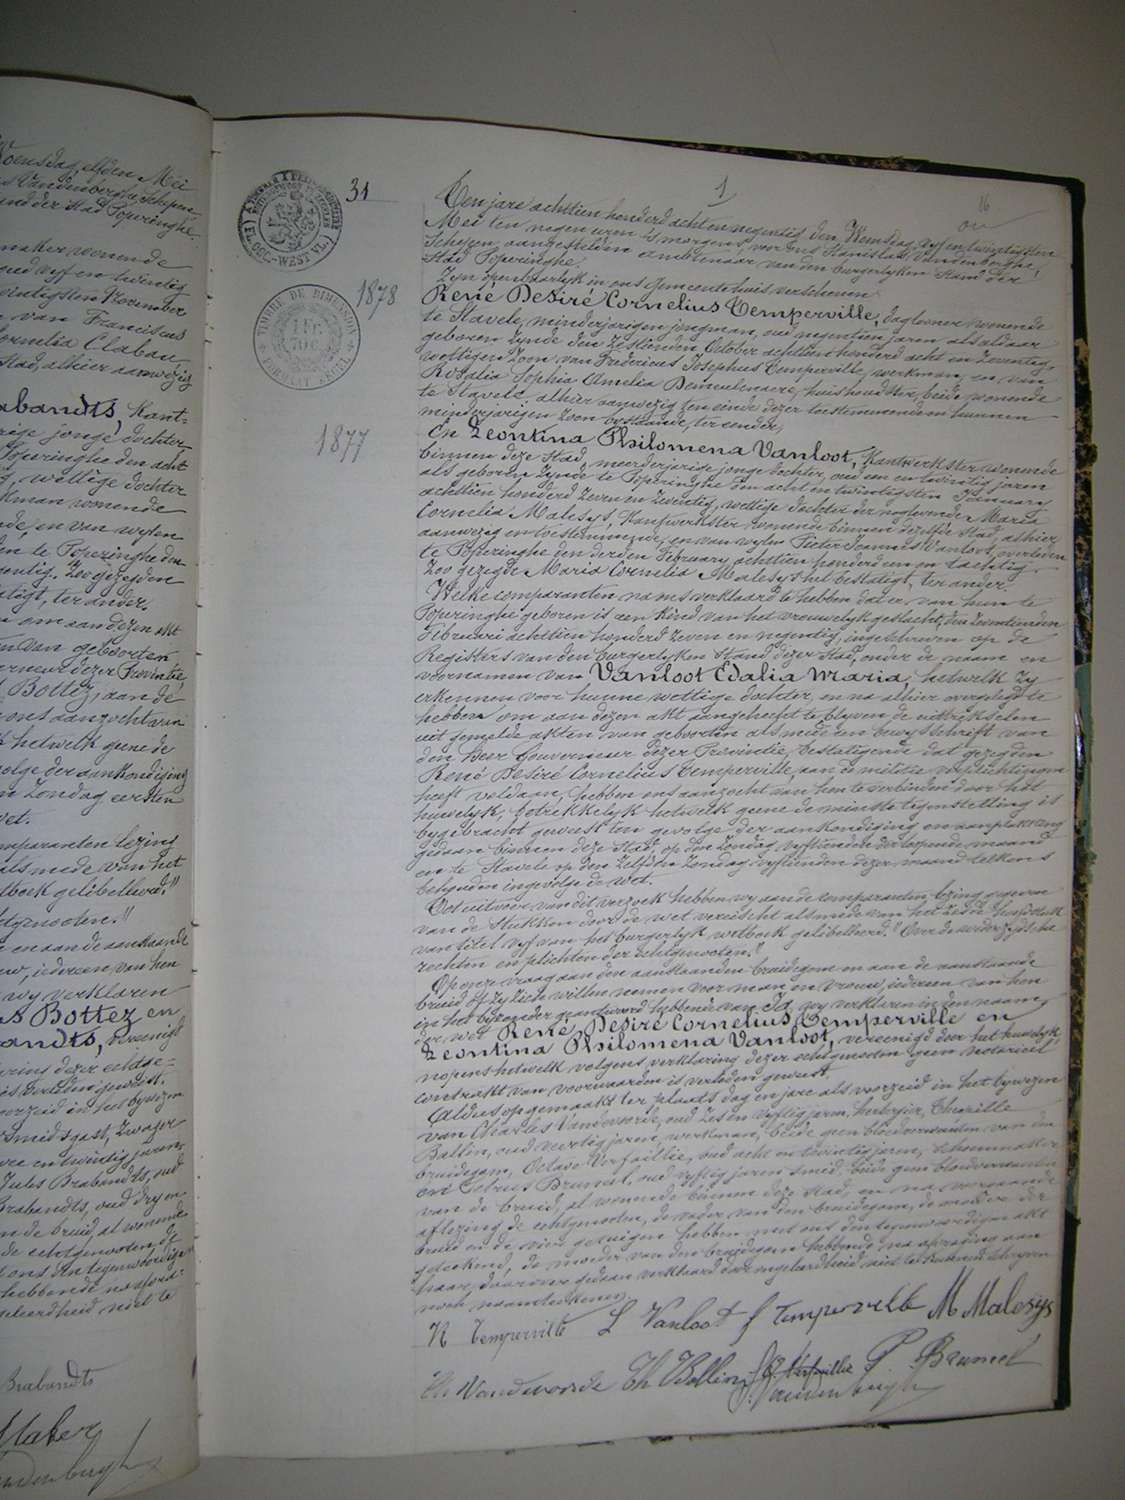 Woensdag, elfden Mei
Vandenberghe, Schepen
der Stad Poperinghe.
maker wonende
oud vyf en twintig
twintigsten November
van Franciscus
Cornelia Clabau
Stad, alhier aanwezig
abandts, Kant-
rige jonge dochter
Poperinghe den acht
wettige dochter
kman wonende
en van wylen
te Poperinghe den
Zoo gezegden
tigt, ter ander.
om aan dezen akt
van geboorten
erneur dezer Provintie,
Bottez, aan de
ons aanzocht van
hetwelk geene de
volge der aankondiging
Zondag eersten
wet.
mparanten lezing
alsmede van het
tboek gelibelleerd:"
htgenooten."
en aan de aanstaande
uw, iedereen van hen
wy verklaren
Bottez en
andts, vereenigd
dezer echtge-
is verleden geweest.
voorzeid in het bywezen
Smidsgast, Zwager
twee en twintig jaren,
Jules Brabandts, oud
Brabandts, oud dry en
de bruid, al wonende
de echtgenooten, de
ons den tegenwoordigen
hebbende na afvra-
geleerdheid niet te
Brabandts
Maber
Vandenberghe
31
1
16
TIMBRE DE DIMENSION
1 Fr.
70 C.
FORMAT REGEL
(FL. OCC.-WEST VL.)
1878
1877
Ten jare achttien honderd acht en negentig den Woensdag, vyf en twintigsten
Mei ten negen uren 's morgens, voor ons Stanislas Vandenberghe,
Schepen aangestelden ambtenaar van den burgerlyken Stand der
Stad Poperinghe.
Zyn openbaarlyk in ons Gemeentehuis verschenen
René Desiré Cornelius Temperville, daglooner wonende
te Stavele, minderjarigen jongman, oud negentien jaren, als aldaar
geboren zynde den zestienden October achttien honderd acht en zeventig,
wettigen Zoon van Fredericus Josephus Temperville, werkman, en van
Rosalia Sophia Amelia Demeulenaere, huishoudster, beide wonende
te Stavele, alhier aanwezig ten einde dezer toestemmende en hunnen
minderjarigen Zoon bystaande, ter eender,
En Leontina Philomena Vanloot, Kantwerkster wonende
binnen deze Stad, meerderjarige jonge dochter, oud een en twintig jaren
als geboren zynde te Poperinghe den acht en twintigsten January
achttien honderd zeven en zeventig, wettige dochter der nog levende Maria
Cornelia Malesys, Kantwerkster wonende binnen dezelfde Stad, alhier
aanwezig en toestemmende, en van wylen Pieter Joannes Vanloot, overleden
te Poperinghe den derden February achttien honderd een en tachtig.
Zoo gezegde Maria Cornelia Malesys het bestatigt, ter ander.
Welke comparanten na ons verklaard te hebben dat er van hun te
Poperinghe geboren is een Kind van het vrouwelyk geslacht, den zeventienden
Februari achttien honderd zeven en negentig, ingeschreven op de
Registers van den burgerlyken Stand dezer Stad, onder de naam en
voornamen van Vanloot Edalia Maria, hetwelk zy
erkennen voor hunne wettige dochter, en na alhier overgelegd te
hebben om aan dezen akt aangehecht te blyven de uittrekselen
uit gemelde akten van geboorten alsmede een bewysschrift van
den Heer Gouverneur dezer Provintie, bestatigende dat gezegden
René Desiré Cornelius Temperville, aan de militie verplichtingen
heeft voldaan, hebben ons aanzocht van hen te verbinden door het
huwelyk, betrekkelyk hetwelk geene de minste tegenstelling is
bygebracht geweest ten gevolge der aankondiging en aanplakking
gedaan binnen deze Stad, op den Zondag, vyftienden der loopende maand
en te Stavele op den zelfden Zondag vyftienden dezer maand telkens
behouden ingevolge de wet.
Tot uitvoer van dit verzoek hebben wy aan de comparanten lezing gegeven
van de Stukken door de wet vereischt alsmede van het zesde hoofdstuk
van titel vyf van het burgerlyk wetboek gelibelleerd: "Over de wederzydsche
rechten en plichten der echtgenooten."
Op onze vraag aan den aanstaanden bruidegom en aan de aanstaande
bruid of zy zich willen nemen voor man en vrouw, iedereen van hen
in het byzonder geantwoord hebbende van Ja, wy verklaren in den naam
der wet René Desiré Cornelius Temperville en
Leontina Philomena Vanloot, vereenigd door het huwelyk,
nopens hetwelk volgens verklaring dezer echtgenooten geen notarieel
contrakt van voorwaarden is verleden geweest.
Aldus opgemaakt ter plaats dag en jare als voorzeid in het bywezen
van Charles Vandevoorde, oud zes en vyftig jaren, herbergier, Theophile
Bellin, oud veertig jaren, werkman, beide geen bloedverwanten van den
bruidegom, Octave Verfaillie, oud acht en twintig jaren, schoenmaker
en Petrus Brunel, oud vyftig jaren smid, beide geen bloedverwanten
van de bruid, al wonende binnen deze Stad, en na voorgaande
aflezing de echtgenooten, de vader van den bruidegom, de moeder der
bruid en de vier getuigen hebben met ons den tegenwoordigen akt
geteekend, de moeder van den bruidegom hebbende na afvraging aan
haar, daarover gedaan verklaard door ongeleerdheid niet te kunnen schryven
noch naamteekenen.
R Temperville L Vanloot f Temperville M Malesys
Ch Vandevoorde Th Bellin O Verfaillie P. Brunel
S. Vandenberghe